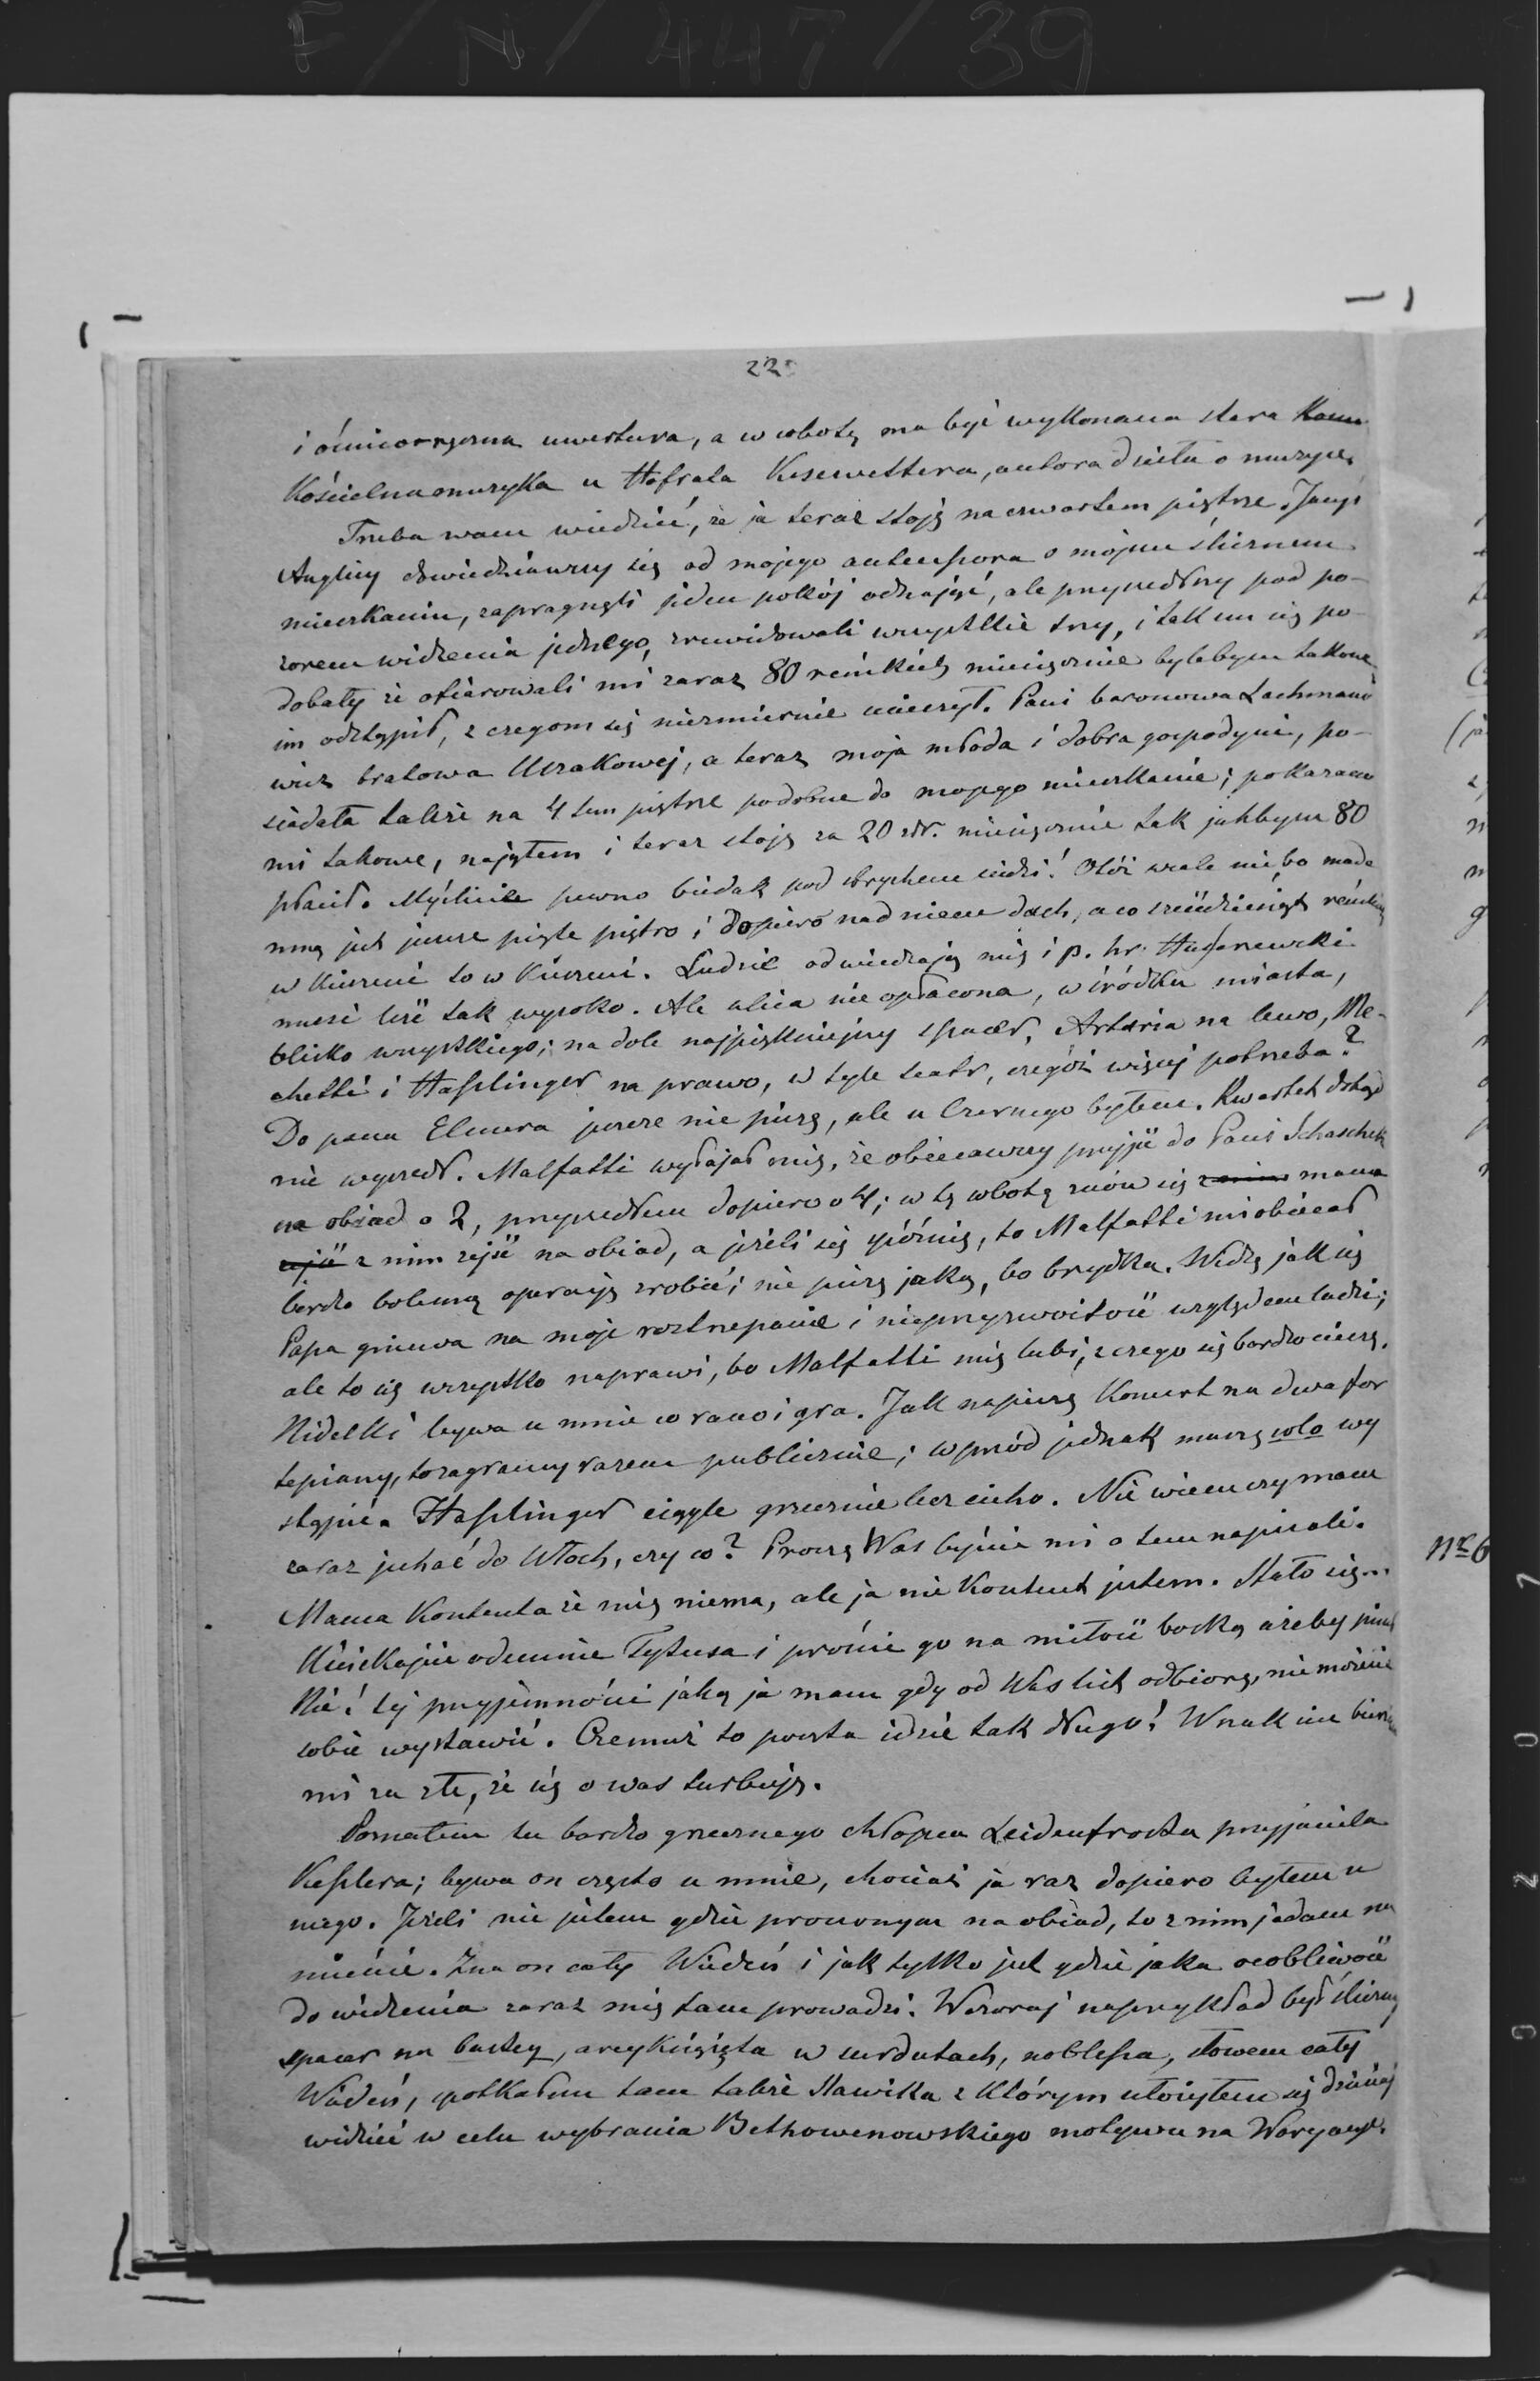 F/N/447/39
22
i ośmioręczna uwertura, a w sobotę ma być wykonana stara
Kościelna muzyka u Hofrata Kesewettera, autora dzieła o muzyce.
Trzeba wam wiedzieć, że ja teraz stoję na czwartem piętrze. Jacyś
Anglicy dowiedziawszy się od mojego antecesora o mojem ślicznem
mieszkaniu, zapragnęli jeden pokój odnająć, ale przyszedłszy pod po-
zorem widzenia jednego, zrewidowali wszystkie trzy, i tak im się po-
dobały że ofiarowali mi zaraz 80 reńskich miesięcznie bylebym takowe
im odstąpił, z czegom się niezmiernie ucieszył. Pani baronowa Lachmano
wicz bratowa Uszakowej, a teraz moja młoda i dobra gospodyni, po-
siadała także na 4tem piętrze podobne do mojego mieszkanie; pokazano
mi takowe, najątem i teraz stoję za 20 złr. miesięcznie tak jakbym 80
płacił. Myślicie pewno biedak pod strychem siedzi! Otóż wcale nie, bo nade
mną jest jeszcze piąte piętro i dopiero nad niem dach, a co sześćdziesiąt reńskich
w kieszeni to w kieszeni. Ludzie odwiedzają mię i p. hr. Hussarzewski
musi leść tak wysoko. Ale ulica nie opłacona, w śródku miasta,
blisko wszystkiego; na dole najpiękniejszy spacer, Artaria na lewo, Me-
chetti i Hasslinger na prawo, w tyle teatr, czegóż więcej potrzeba?
Do pana Elsnera jeszcze nie piszę, ale u Czernego byłem. Kwartet dotąd
nie wyszedł. Malfatti wyłajał mię, że obiecawszy przyjść do Pani Schaschek
na obiad o 2, przyszedłem dopiero o 4; w tę sobotę znów się mam
z nim zejść na obiad, a jeżeli się spóźnię, to Malfatti mi obiecał
bardzo bolesną operacyę zrobić; nie piszę jaką, bo brzydka. Widzę jak się
Papa gniewa na moje roztrzepanie i nieprzyzwoitość względem ludzi;
ale to się wszystko naprawi, bo Malfatti mię lubi, z czego się bardzo cieszę.
Nidecki bywa u mnie co rano i gra. Jak napiszę Koncert na dwa for
tepiany, to zagramy razem publicznie; wprzód jednak muszę solo wy
stąpić. Hasslinger ciągle grzecznie lecz cicho. Nie wiem czy mam
zaraz jechać do Włoch, czy co? Proszę Was byście mi o tem napisali.
Mama Kontenta że mię niema, ale ja nie Kontent jestem. Stało się...
Uściskajcie odemnie Tytusa i proście go na miłość boską ażeby pisał
Nie! tej przyjemności jaką ja mam gdy od Was list odbiorę, nie możecie
sobie wystawić. Czemuż to poczta idzie tak długo! Wszak nie bierzecie
mi za złe, że się o was turbuję.
Poznałem tu bardzo grzecznego chłopca Leidenfrosta przyjaciela
Kesslera; bywa on często u mnie, chociaż ja raz dopiero byłem u
niego. Jeżeli nie jestem gdzie proszonym na obiad, to z nim jadam na
mieście. Zna on cały Wiedeń i jak tylko jest gdzie jaka osobliwość
do widzenia zaraz mię tam prowadzi. Wczoraj naprzykład był śliczny
spacer na bastey, arcyksiążęta w surdutach, noblessa, słowem cały
Wiedeń, spotkałem tam także Slawika z którym ułożyłem się dzisiaj
widzieć w celu wybrania Bethowenowskiego motywu na Waryacye.
Nr 6